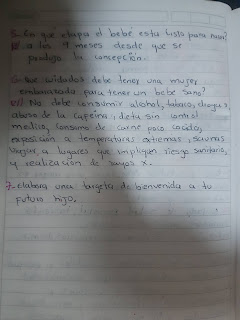 5. En que etapa el bebé esta listo para nacer?
R= a los 9 meses desde que se
produjo la concepción.
6. que cuidados debe tener una mujer
embarazada para tener un bebé sano?
R= No debe consumir alcohol, tabaco, drogas,
abuso de la cafeina, dieta sin control
medico, consumo de carne poco cocidos,
exposición a temperaturas extremas, saunas
viajar a lugares que impliquen riesgo sanitario,
y realización de rayos x.
7. elabora una targeta de bienvenida a tu
futuro hijo.